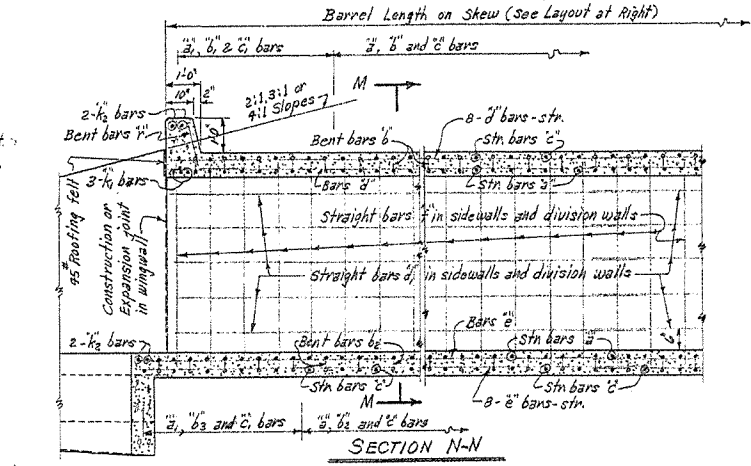 Barrel Length on Skew (See Layout at Right)
"a₁", "b₁" & "c₁" bars
"a", "b" and "c" bars
1'-0"
10" 2"
M
2:1, 3:1 or
4:1 Slopes
2-"k₂" bars
Bent bars "r"
1'-0"
Bent bars "b"
8-"d" bars-str.
Str. bars "c"
3-"k₁" bars
Bars "d"
Str. bars "a"
45# Roofing felt
Construction or
Expansion joint
in wingwall
Straight bars "f" in sidewalls and division walls
Straight bars "d₁" in sidewalls and division walls
6"
2-"k₂" bars
Bent bars b₂
Bars "e"
Str. bars "a"
Str. bars "c"
Str. bars "c"
8-"e" bars-str.
M
"a₁", "b₃" and "c₁" bars
"a", "b₂" and "c" bars
SECTION N-N